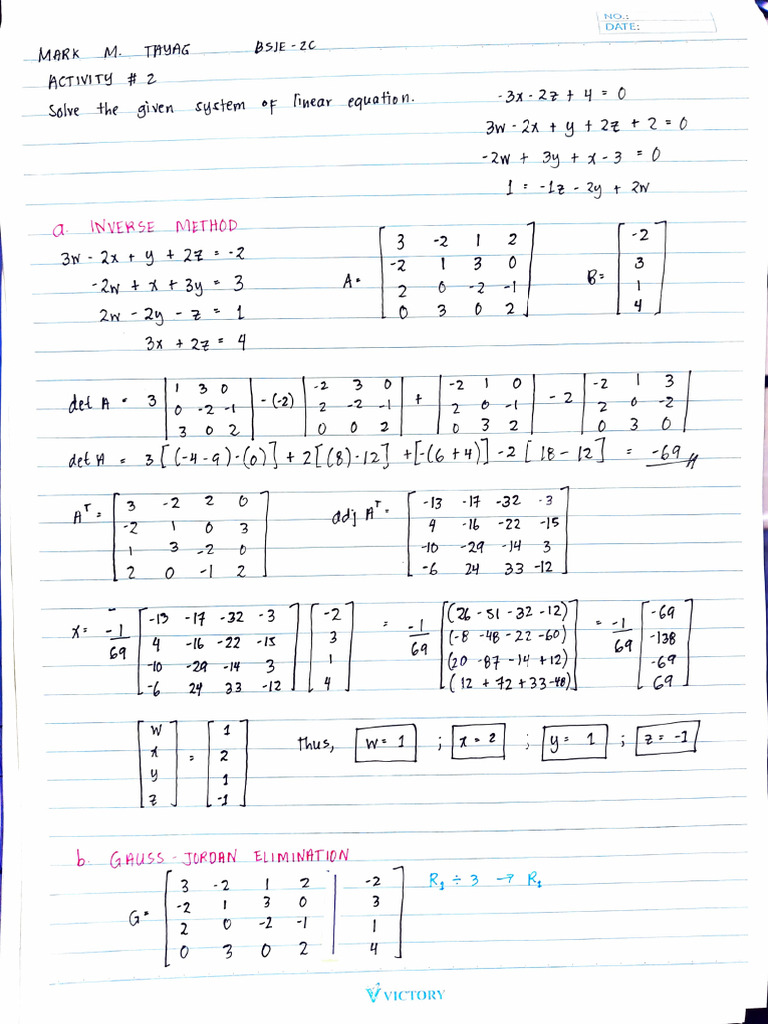 NO.:
DATE:
MARK M. TAYAG BSIE-2C
ACTIVITY # 2
Solve the given system of linear equation.
-3x - 2z + 4 = 0
3w - 2x + y + 2z + 2 = 0
-2w + 3y + x - 3 = 0
1 = -1z - 2y + 2w
a. INVERSE METHOD
3w - 2x + y + 2z = -2
-2w + x + 3y = 3
2w - 2y - z = 1
3x + 2z = 4
A=
3 -2 1 2
-2 1 3 0
2 0 -2 -1
0 3 0 2
B=
-2
3
1
4
det A = 3 | 1 3 0 | - (-2) | -2 3 0 | + | -2 1 0 | - 2 | -2 1 3 |
| 0 -2 -1 | | 2 -2 -1 | | 2 0 -1 | | 2 0 -2 |
| 3 0 2 | | 0 0 2 | | 0 3 2 | | 0 3 0 |
det A = 3[(-4-9)-(0)] + 2[(8)-12] + [-(6+4)] - 2[18-12] = -69
A^T =
3 -2 2 0
-2 1 0 3
1 3 -2 0
2 0 -1 2
adj A^T =
-13 -17 -32 -3
4 -16 -22 -15
-10 -29 -14 3
-6 24 33 -12
X = -1/69
-13 -17 -32 -3
4 -16 -22 -15
-10 -29 -14 3
-6 24 33 -12
-2
3
1
4
= -1/69
(26 - 51 - 32 - 12)
(-8 - 48 - 22 - 60)
(20 - 87 - 14 + 12)
(12 + 72 + 33 - 48)
= -1/69
-69
-138
-69
69
w 1
x = 2
y 1
z -1
thus, w = 1 ; x = 2 ; y = 1 ; z = -1
b. GAUSS - JORDAN ELIMINATION
G=
3 -2 1 2 | -2
-2 1 3 0 | 3
2 0 -2 -1 | 1
0 3 0 2 | 4
R1 ÷ 3 → R1
VICTORY